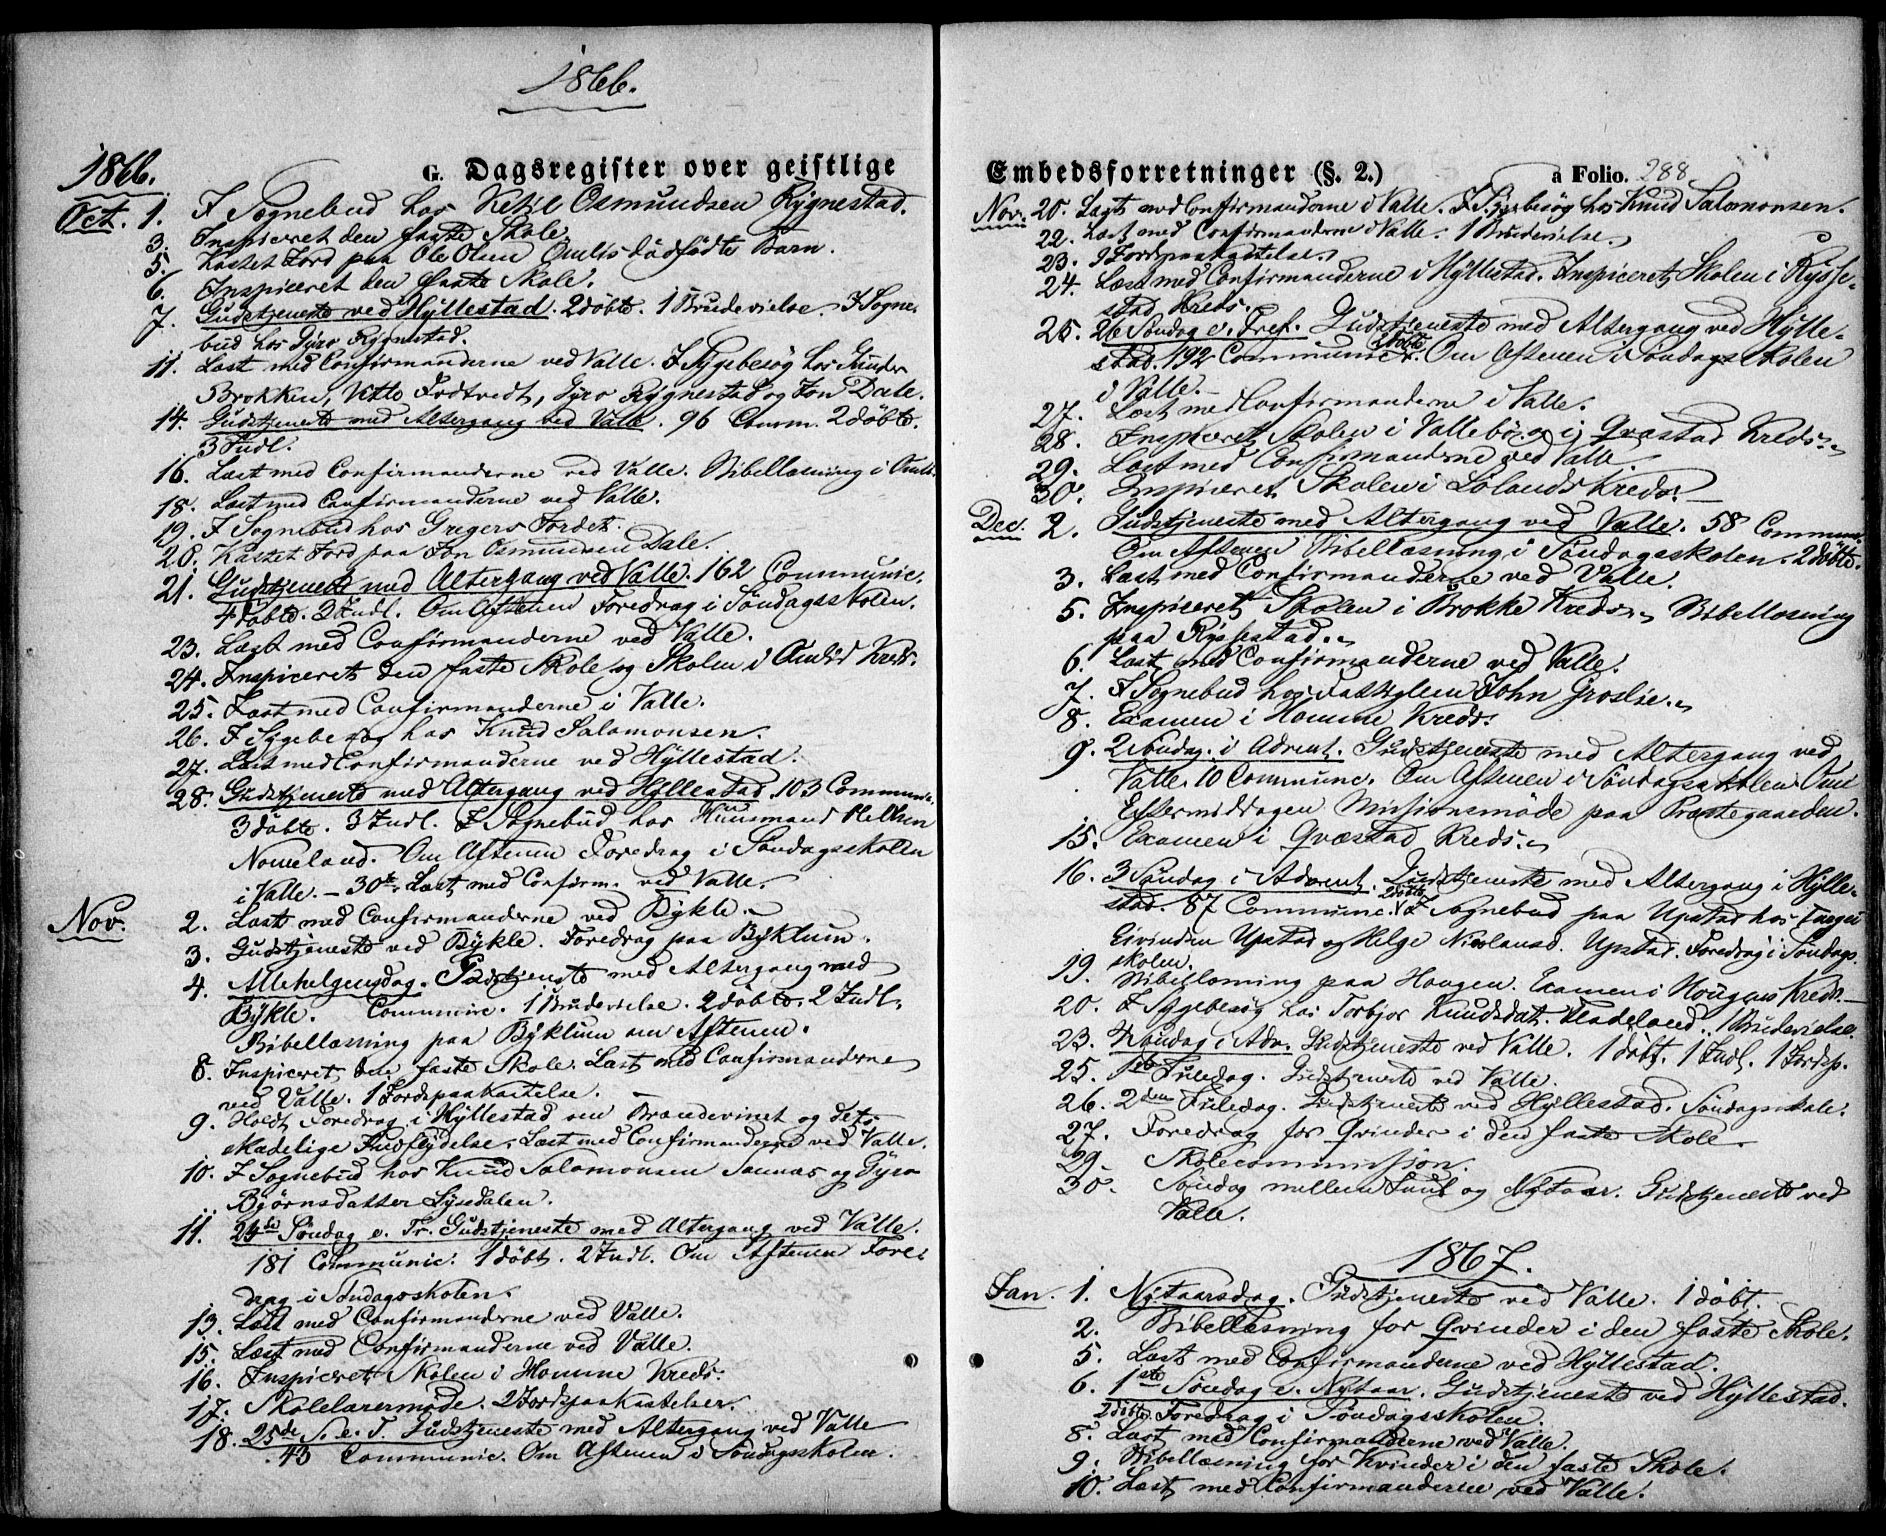 1866.
G. Dagsregister over geistlige
1866.
Oct. 1. I Sognebud hos Ketil Osmundsen Rygnestad.
3. Inspiceret den faste Skole.
5. Kastet Jord paa Ole Olsen Omlis dødfødte Barn.
6. Inspiceret den faste Skole.
7. Gudstjeneste ved Hyllestad. 2 døbte. 1 Brudevielse. I Sogne-
bud hos Gyro Rygnestad.
11. Læst med Confirmanderne ved Valle. I Sygebesøg hos Gunder
Brokken, Fodtvedt, Gyro Rygnestad og Jon Dale.
14. Gudstjeneste med Altergang ved Valle. 96 Comm. 2 døbte.
3 Indl.
16. Læst med Confirmanderne ved Valle. Bibellæsning i Omli.
18. Læst med Confirmanderne ved Valle.
19. I Sognebud hos Gregers Jordet.
20. Kastet Jord paa Jon Osmundsen Dale.
21. Gudstjeneste med Altergang ved Valle. 162 Communic.
4 døbte. 3 Indl. Om Aftenen Foredrag i Søndagsskolen.
23. Læst med Confirmanderne ved Valle.
24. Inspiceret den faste Skole og Skolen i Omlid Kreds.
25. Læst med Confirmanderne i Valle.
26. I Sygebesøg hos Knud Salamonsen.
27. Læst med Confirmanderne ved Hyllestad.
28. Gudstjeneste med Altergang ved Hyllestad. 103 Communic.
3 døbte. 3 Indl. I Sognebud hos Huusmand
Nomeland. Om Aftenen Foredrag i Søndagsskolen
i Valle. – 30te Læst med Confirm. ved Valle.
Nov. 2. Læst med Confirmanderne ved Bykle.
3. Gudstjeneste ved Bykle. Foredrag paa Byklum.
4. Allehelgensdag. Gudstjeneste med Altergang ved
Bykle. Commune. 1 Brudevielse. 2 døbte. 2 Indl.
Bibellæsning paa Byklum om Aftenen.
8. Inspiceret den faste Skole. Læst med Confirmanderne
ved Valle. 1 Jordspaakastelse.
9. Holdt Foredrag i Hyllestad om Brændevinet og dets
skadelige Indflydelse. Læst med Confirmanderne ved Valle.
10. I Sognebud hos Knud Salamonsen og Gyro
Bjørnsdatter Lysedalen.
11. 24de Søndag e. Tr. Gudstjeneste med Altergang ved Valle.
181 Communic. 1 døbt. 2 Indl. Om Aftenen Fore-
drag i Søndagsskolen.
13. Læst med Confirmanderne ved Valle.
15. Læst med Confirmanderne ved Valle.
16. Inspiceret Skolen i Homme Kreds.
17. Skolelærermøde. 2 Jordspaakastelser.
18. 25de S. e. T. Gudstjeneste med Altergang ved Valle
43 Communic. Om Aftenen i Søndagsskolen.
Embedsforretninger (§. 2.) a Folio. 288
Nov. 20. Læst med Confirmanderne i Valle. I Sygebesøg hos Knud Salomonsen.
22. Læst med Confirmanderne i Valle. 1 Brudevielse.
23. Jordspaakastelse.
24. Læst med Confirmanderne i Hyllestad. Inspiceret Skolen i Rysse-
stad Kreds.
25. 26 Søndag e. Tref. Gudstjeneste med Altergang ved Hylle-
stad. 192 Communic. 2 døbte. Om Aftenen i Søndagsskolen
i Valle. –
27. Læst med Confirmanderne i Valle.
28. Inspiceret Skolen i Vallebø og i Qvæstad Kreds.
29. Læst med Confirmanderne ved Valle.
30. Inspiceret Skolen i Løland Kreds. –
Dec. 2. Gudstjeneste med Altergang ved Valle. 58 Commun.
Om Aftenen Bibellæsning i Søndagsskolen. 2 døbte.
3. Læst med Confirmanderne ved Valle.
5. Inspiceret Skolen i Brokke Kreds. Bibellæsning
paa Ryssestad.
6. Læst med Confirmanderne ved Valle.
7. I Sognebud hos John Groslie.
8. Examen i Homme Kreds.
9. 2 Søndag i Advent. Gudstjeneste med Altergang ved
Valle. 10 Commune. Om Aftenen i Søndagsskolen. Om
Eftermiddagen Missionsmøde paa Præstegaarden.
15. Examen i Qvæstad Kreds.
16. 3 Søndag i Advent. Gudstjeneste med Altergang i Hylle-
stad. 87 Communic. 2 døbte. I Sognebud paa Upstad hos
Eivindsen Upstad og Helge Nicolausd. Upstad. Foredrag i Søndags-
skolen.
19. Bibellæsning paa Hougen. Examen i Hougens Kreds. –
20. I Sygebesøg hos Torbjør Knudsdat. Fladeland. 1 Brudevielse.
23. 4 Søndag i Adv. Gudstjeneste ved Valle. 1 døbt. 1 Indl. 1 Jordsp.
25. 1ste Juledag. Gudstjeneste ved Valle.
26. 2den Juledag. Gudstjeneste ved Hyllestad. Søndagsskole.
27. Foredrag for Qvinder i den faste Skole.
29. Skolecommission.
30. Søndag mellem Juul og Nytaar. Gudstjeneste ved
Valle.
1867.
Jan. 1. Nytaarsdag. Gudstjeneste ved Valle. 1 døbt.
2. Bibellæsning for Qvinder i den faste Skole.
5. Læst med Confirmanderne ved Hyllestad.
6. 1ste Søndag e. Nytaar. Gudstjeneste ved Hyllestad.
2 døbte. Foredrag i Søndagsskolen.
8. Læst med Confirmanderne ved Valle.
9. Bibellæsning for Kvinder i den faste Skole.
10. Læst med Confirmanderne ved Valle.